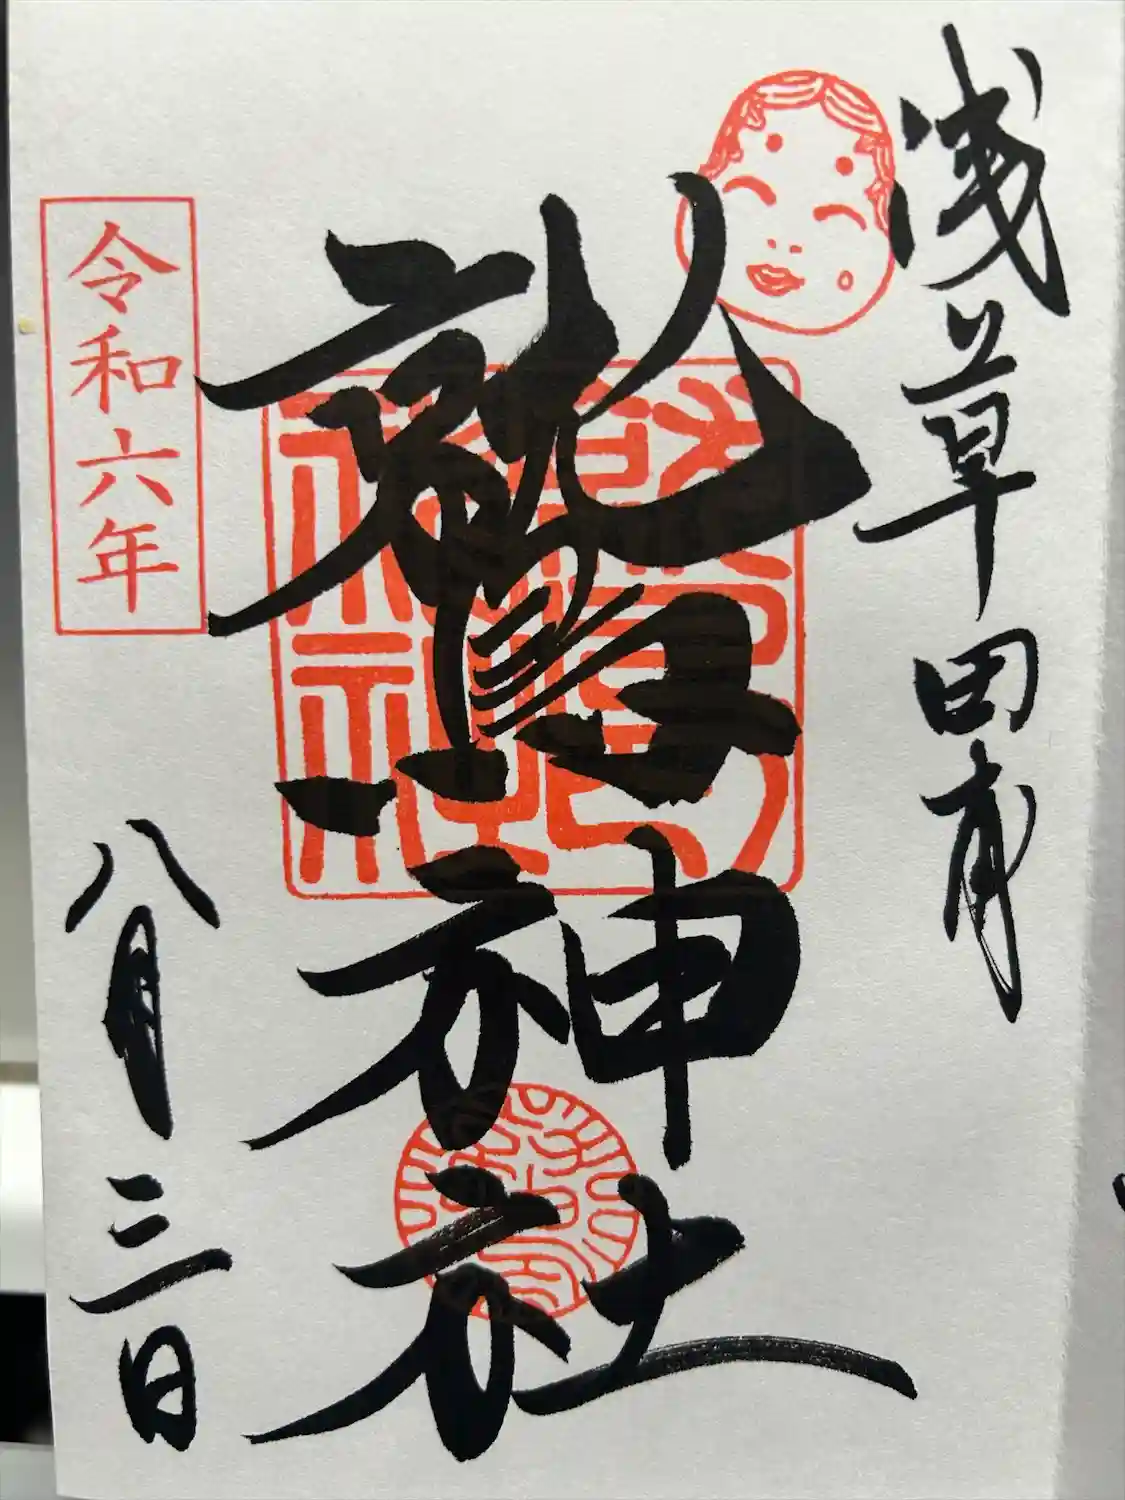 浅草田甫
鷲神社
令和六年
八月三日